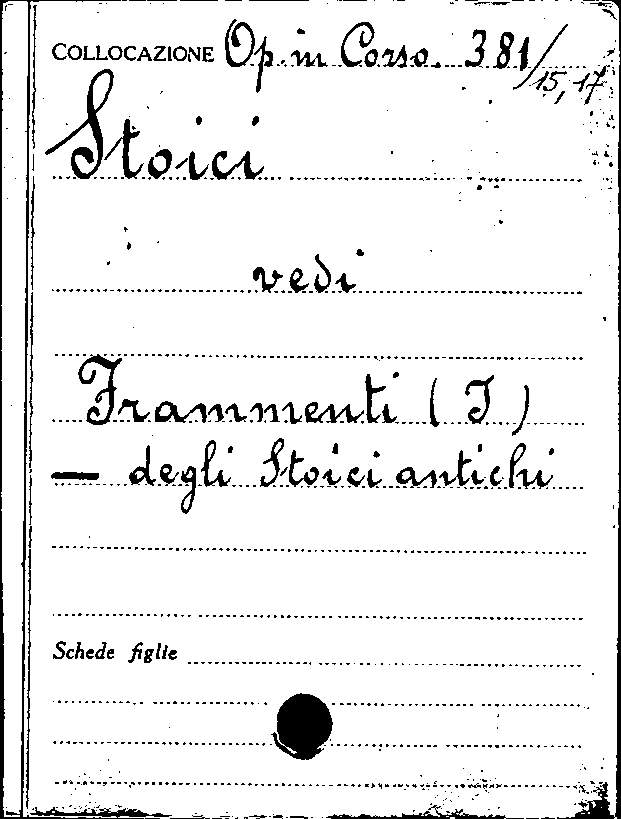 COLLOCAZIONE Op. in Corso. 381/15, 17
Stoici
vedi
Frammenti (I)
— degli Stoici antichi
Schede figlie